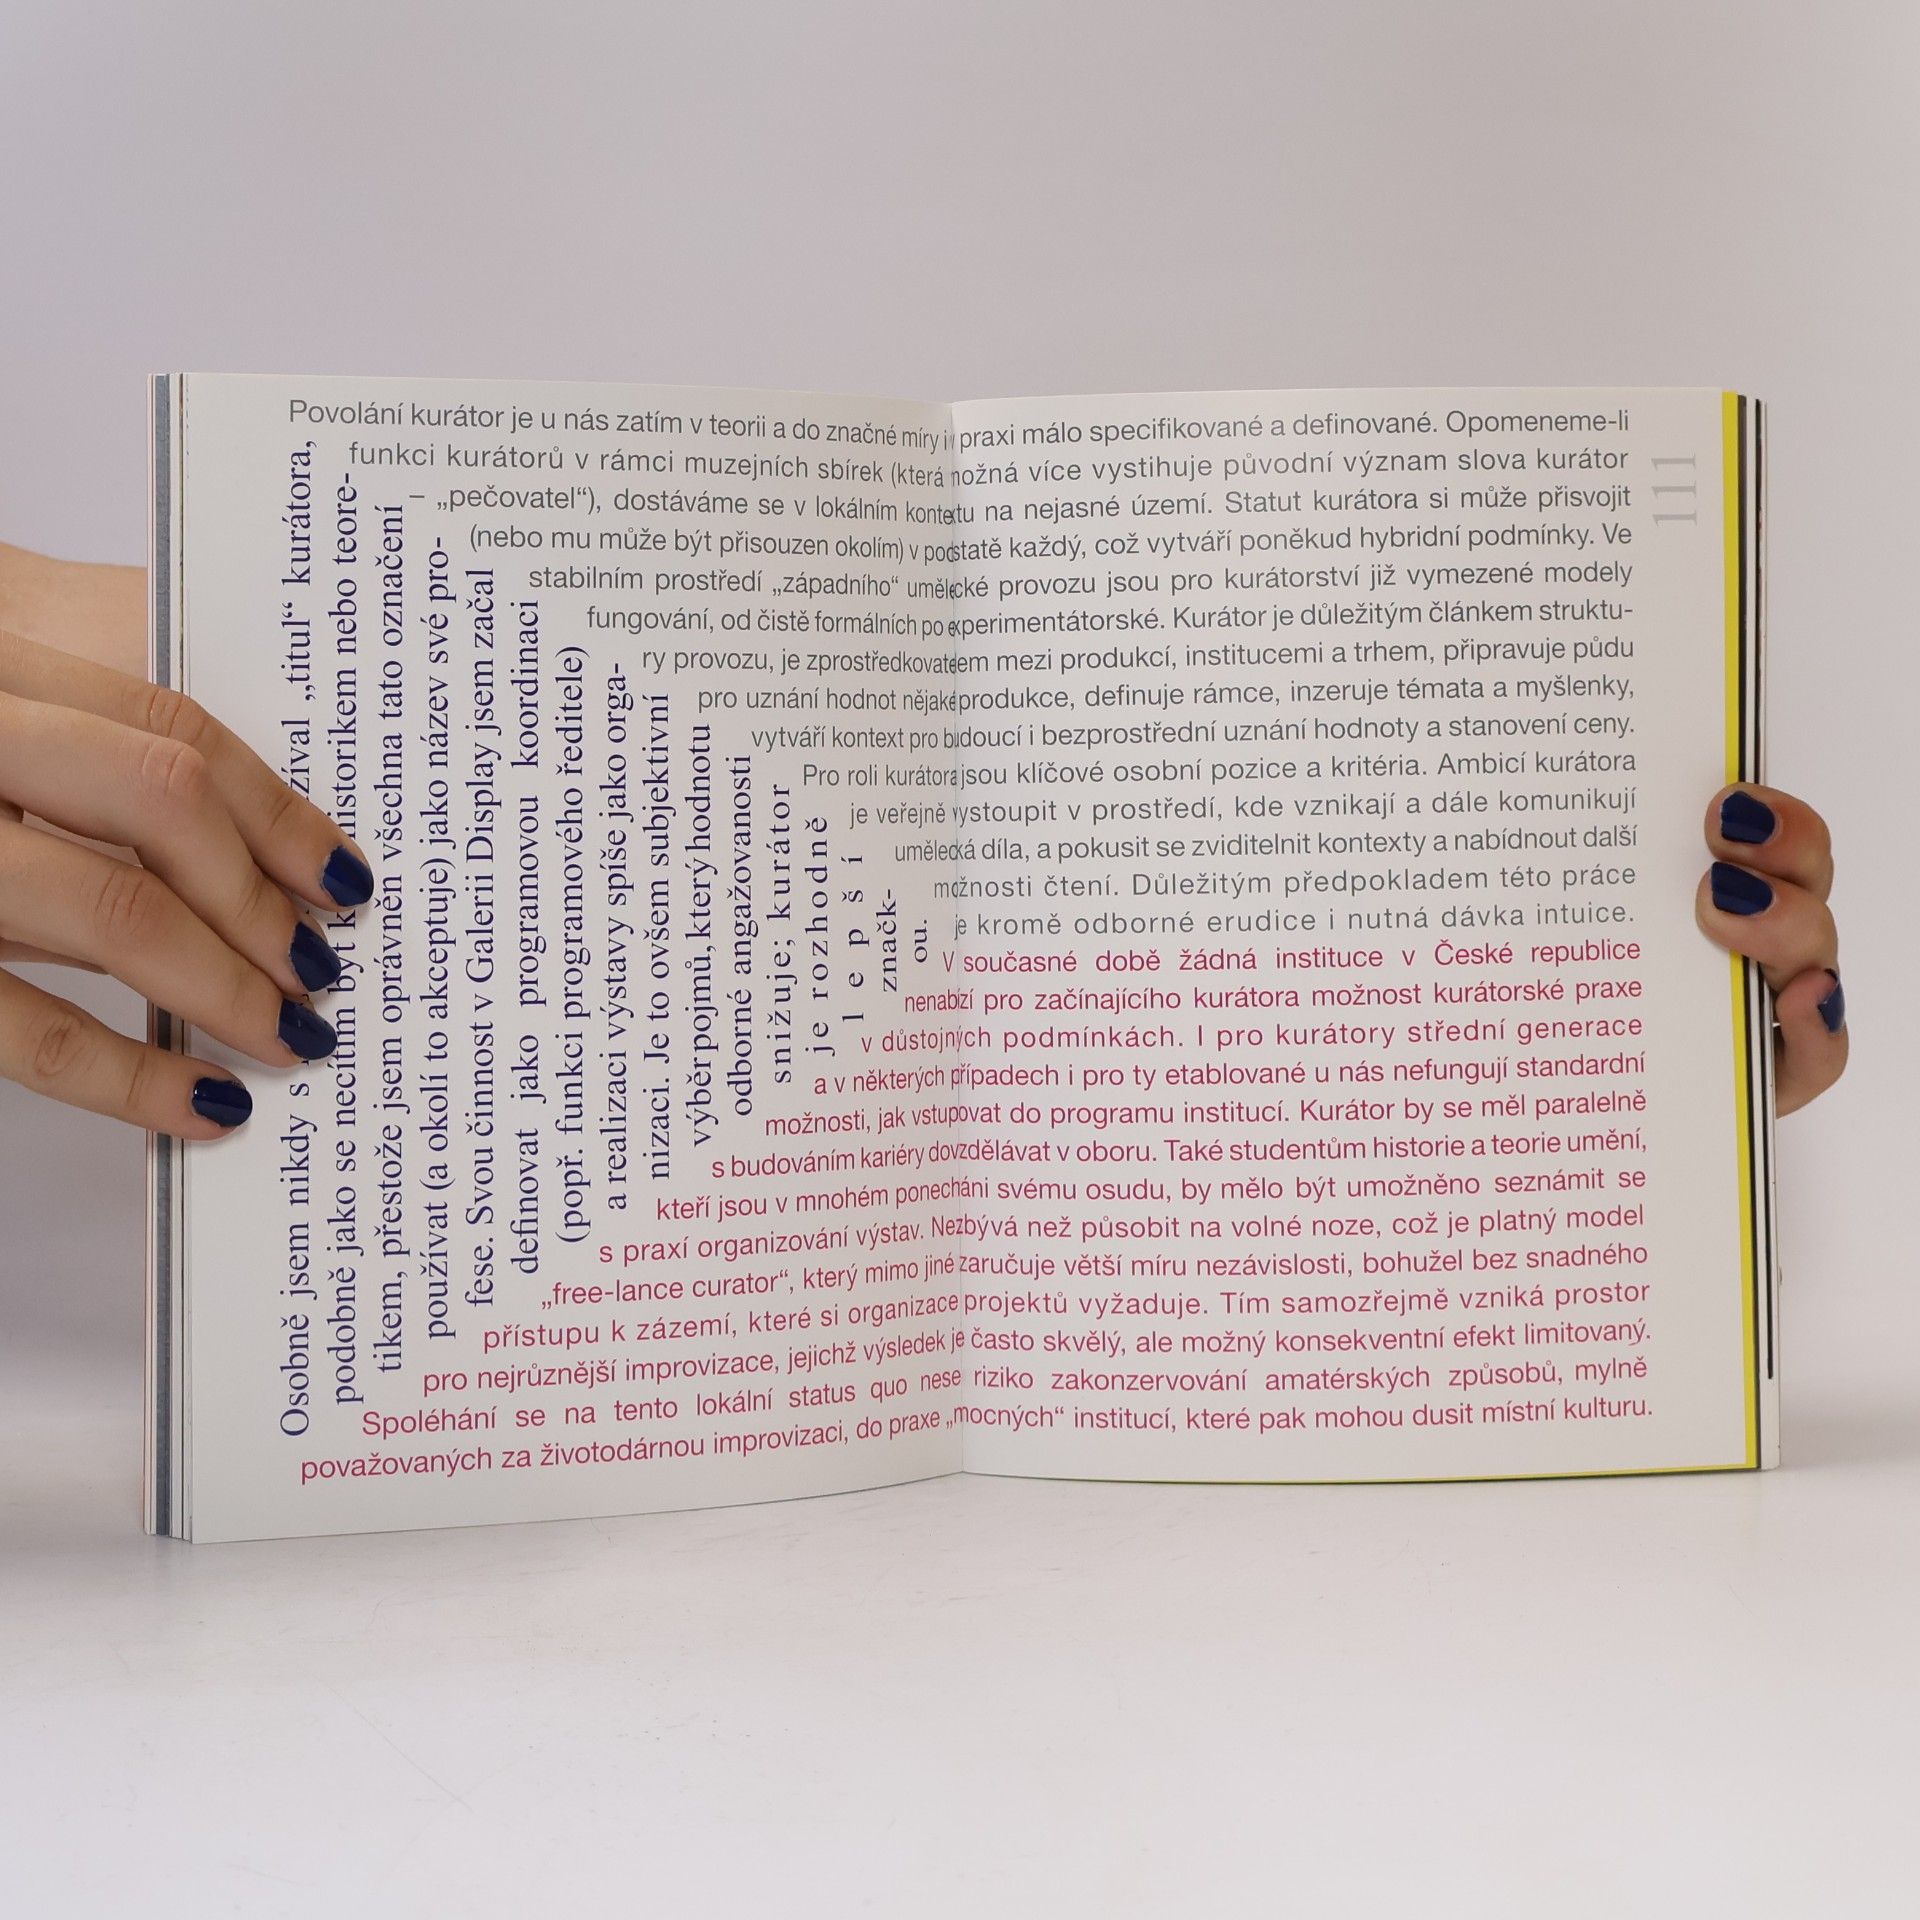 Povolání kurátor je u nás zatím v teorii a do značné míry i v praxi málo specifikované a definované. Opomeneme-li
funkci kurátorů v rámci muzejních sbírek (která možná více vystihuje původní význam slova kurátor
– „pečovatel“), dostáváme se v lokálním kontextu na nejasné území. Statut kurátora si může přisvojit
(nebo mu může být přisouzen okolím) v podstatě každý, což vytváří poněkud hybridní podmínky. Ve
stabilním prostředí „západního“ umělecké provozu jsou pro kurátorství již vymezené modely
fungování, od čistě formálních po experimentátorské. Kurátor je důležitým článkem struktu-
ry provozu, je zprostředkovatelem mezi produkcí, institucemi a trhem, připravuje půdu
pro uznání hodnot nějaké produkce, definuje rámce, inzeruje témata a myšlenky,
vytváří kontext pro budoucí i bezprostřední uznání hodnoty a stanovení ceny.
Pro roli kurátora jsou klíčové osobní pozice a kritéria. Ambicí kurátora
je veřejně vystoupit v prostředí, kde vznikají a dále komunikují
umělecká díla, a pokusit se zviditelnit kontexty a nabídnout další
možnosti čtení. Důležitým předpokladem této práce
je kromě odborné erudice i nutná dávka intuice.
V současné době žádná instituce v České republice
nenabízí pro začínajícího kurátora možnost kurátorské praxe
v důstojných podmínkách. I pro kurátory střední generace
a v některých případech i pro ty etablované u nás nefungují standardní
možnosti, jak vstupovat do programu institucí. Kurátor by se měl paralelně
s budováním kariéry dovzdělávat v oboru. Také studentům historie a teorie umění,
kteří jsou v mnohém ponecháni svému osudu, by mělo být umožněno seznámit se
s praxí organizování výstav. Nezbývá než působit na volné noze, což je platný model
„free-lance curator“, který mimo jiné zaručuje větší míru nezávislosti, bohužel bez snadného
přístupu k zázemí, které si organizace projektů vyžaduje. Tím samozřejmě vzniká prostor
pro nejrůznější improvizace, jejichž výsledek je často skvělý, ale možný konsekventní efekt limitovaný.
Spoléhání se na tento lokální status quo nese riziko zakonzervování amatérských způsobů, mylně
považovaných za životodárnou improvizaci, do praxe „mocných“ institucí, které pak mohou dusit místní kulturu.
Osobně jsem nikdy s „titul“ kurátora,
podobně jako se necítím být historikem nebo teore-
tikem, přestože jsem oprávněn všechna tato označení
používat (a okolí to akceptuje) jako název své pro-
fese. Svou činnost v Galerii Display jsem začal
definovat jako programovou koordinaci
(popř. funkci programového ředitele)
a realizaci výstavy spíše jako orga-
nizaci. Je to ovšem subjektivní
výběr pojmů, který hodnotu
odborné angažovanosti
snižuje; kurátor
je rozhodně
lepší
značk-
ou.
111